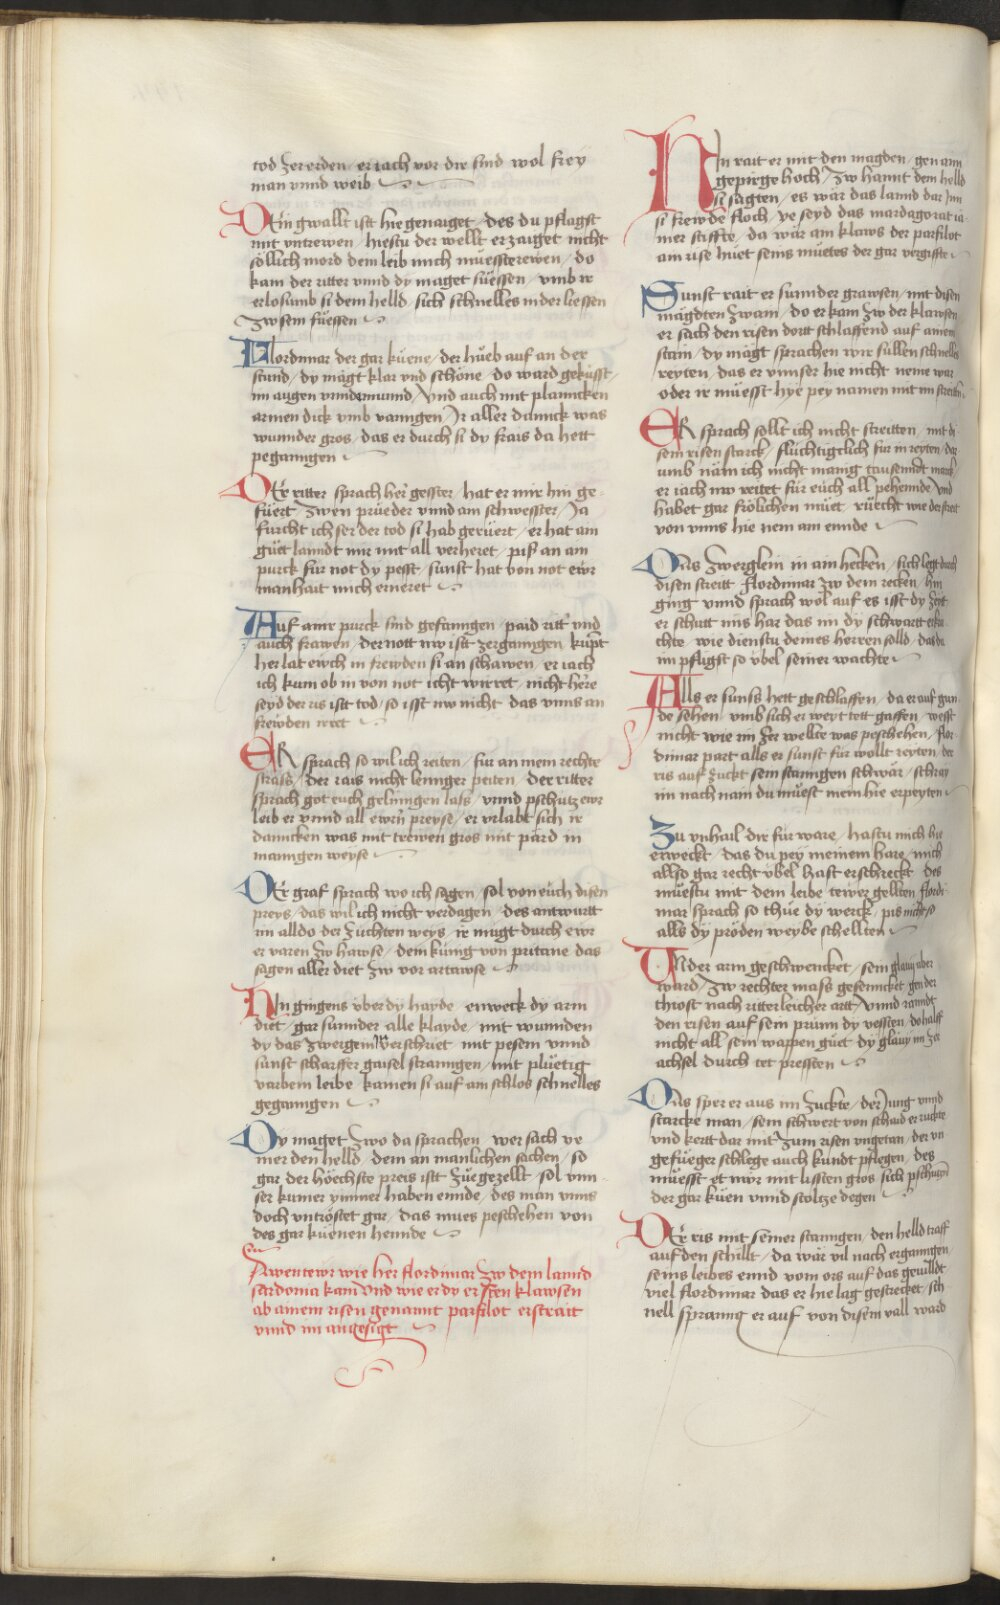 tod zer erden / er iach vor dir sind wol frey
man vnnd weib
Der gwallt istt hie genaiget / des du pflagst
mit vntrewen / hiestu der wellt erzaiget nicht
söllich mord dem leib mich müessterewen / do
kam der ritter vnnd dy maget süessen / vmb ir
erlosumb si dem helld / sich schnelles nider liessen
zw sem füessen
Flordimar der gar küene / der hüeb auf an der
stund / dy mägt klar vnd schöne / do ward geküsst /
im augen vnnder munnd / Vnd auch mit planncken
armen dick vmb vanngen / Ir aller dannck was
wunnder gros / das er durch si dy frais da hett
peganngen
Der ritter sprach her gesster / hat er mir hin ge-
füert / zwen prüeder vnnd am schwesster / Ja
furcht ich ser der tod si hab gerüert / er hat am
güet lanndt mir mit all verheret / piss an am
purck für not dy pesst / sunst hat von not ewr
manhait mich erneret
Auf amr purck sind gefanngen / paid ritt' vnd
auch frawen / der nott nw istt zerganngen / kupt
her lat ewch in frewden si an schawen / er iach
ich kum ob in von not icht wirret / nicht here
seyd der ris istt tod / so isst nw nicht das vnns an
frewden irret
ER sprach so wil ich reiten / fur an mem rechte
strass / der rais nicht lennger peiten / der ritter
sprach got euch gelinngen lass / vnnd pschutz ewr
leib er vnnd all ewrn preyse / er vrlabt sich ir
danncken was mit trewen gros mit pärd in
manngen weyse
Der graf sprach wo ich sagen / sol von euch disen
preys / das wil ich nicht verdagen / des antwurtt
im alldo der zuchten weys / ir mügt durch ewr
er varen zw hawse / dem küng von pritane das
sagen aller diet zw vor artawse
Nin gingens vber dy hayde / enweck dy arm
diet / gar sunnder alle klayde / mit wunnden
dy das zwergem verschriet / mit pesem vnnd
sunst scharffer gaisel stranngen / mit plüetig
varbem leibe kamen si auf am schlos schnelles
geganngen
Dy maget zwo da sprachen / wer sach ye
mer den helld / dem an manlichen sachen / so
gar der höechste preis istt züegezellt / sol vnn-
ser kumer ymmer haben ennde / des man vnns
doch vntröstet gar / das mues peschehen von
des gar küenen hennde
Awentewr wie her flordimar zw dem lannd
serdonia kam vnd wie er dy ersten klawsen
ab ainem risen genannt parfilot erstrait
vnnd im angesigt
Nin rait er mit den magden / gen aim
gepirge hoch / zw hannt dem helld
si sagten / es wär das lannd dar inn
si frewde floch / ye seyd das mardagorat ia-
mer stiffte / da wär am klaws der parfilot
am rise hüet sems müetes der gar vergiffte
Sunst rait er sunnder grawsen / mit disen
mägdten zwain / do er kam zw der klawsen
er sach den risen dortt schlaffend auf ainem
stain / dy mägt sprachen wir süllen schnelles
reyten / das er vnnser hie nicht neme war
oder ir müesst hye pey namen mit im streiten
ER sprach sollt ich nicht streitten / mit di
sem risen starck / fluchtigclich für in reyten / dar
umb näm ich nicht manig tausennt marck
er iach nw reitet für euch all pehennde / vnd
habet gar frölichen müet / rüecht wie der streit
von vnns hie nem am ennde
Das zwerglein in ain hecken / sich legt durch
disen streitt / flordimar zw dem recken / hin
ging vnnd sprach wol auf es isst dy zeit
er schutt ins har das im dy schwartt erkra
chte / wie dienstu deines herren solld / das du
im pfligst so vbel seiner wachte
Alls er sunss hett geschlaffen / da er auf gun
de sehen / vmb sich er weyt tett gaffen / wesst
nicht wie im zer wellte was peschehen / flor
dimar part alls er sunst für wollt reyten / der
ris auf zuckt sem stanngen schwär / schray
im nach nain du müest mem hie erpeyten
Zu vnhail dir für ware / hastu mich hie
erweckt / das du pey meinem hare / mich
allso gar recht vbel hast erschreckt / des
müestu mit dem leibe tewer gellten / flordi
mar sprach so thüe dy werck / pis nicht so
alls dy pröden weybe schellten
Vnder arm geschwencket / sem glauy aber
ward / zw rechter mass gesenncket / gen der
throst nach ritterleicher artt / vnnd ranndt
den risen auf sem prünn dy vessten / do halff
nicht all sem wappen güet / dy glauy im zer
achsel durch tet pressten
Das sper er aus im zuckte / der Jung vnnd
starcke man / sem schwert von schaid er ruckte
vnd kertt dar mit zum risen vngetan / der vn
gefüeger schlege auch kundt pflegen / des
müesst et nwr mit lissten gros sich pschutzen
der gar küen vnnd stoltze degen
Der ris mit seiner stanngen / den helld traff
auf den schillt / da wär vil nach erganngen /
seins leibes ennd vom ors auf das gevilldt
viel flordimar das er hie lag gestrecket / sch
nell spranng er auf von disem vall ward